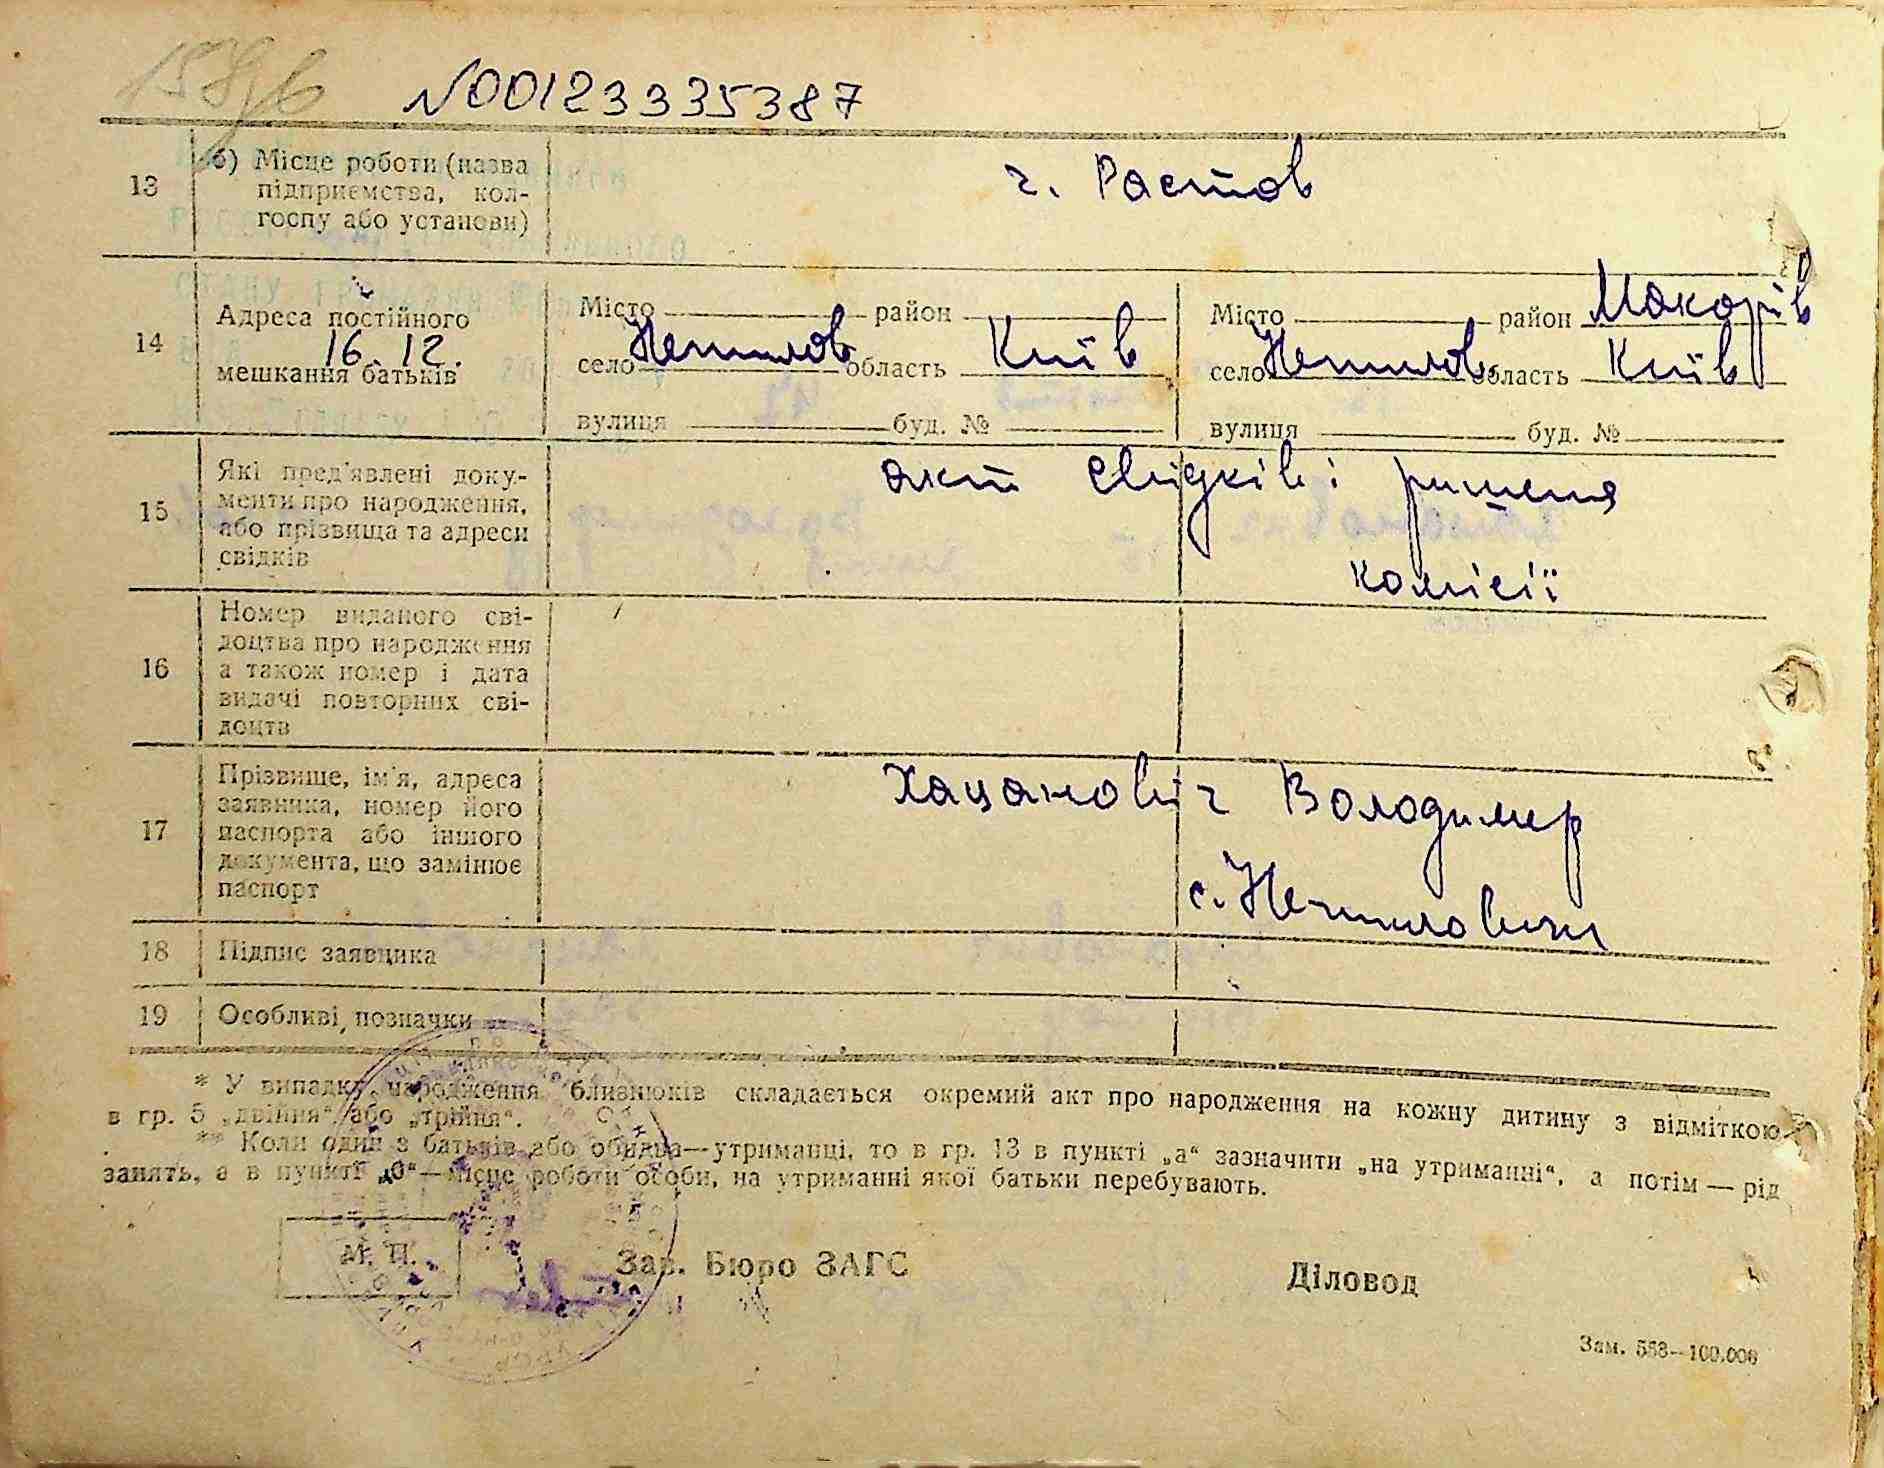 158/6
N00123335387
13
б) Місце роботи (назва
підприємства, кол-
госпу або установи)
г. Растов
14
Адреса постійного
16.12.
мешкання батьків
Місто район
село Немилов область Київ
вулиця буд. №
Місто район Макорів
село Немилов. область Київ
вулиця буд. №
15
Які пред'явлені доку-
менти про народження,
або прізвища та адреси
свідків
акт свідків і ришення
комісії
16
Номер виданого сві-
доцтва про народження
а також номер і дата
видачі повторних сві-
доцтв
17
Прізвище, ім'я, адреса
заявника, номер його
паспорта або іншого
документа, що замінює
паспорт
Хацанович Володимер
с. Немиловичи
18
Підпис заявника
19
Особливі позначки
* У випадку народження близнюків складається окремий акт про народження на кожну дитину з відміткою
в гр. 5 „двійня“ або „трійня“.
** Коли один з батьків або обидва—утриманці, то в гр. 13 в пункті „а“ зазначити „на утриманні“, а потім — рід
занять, а в пункті „б“ — місце роботи особи, на утриманні якої батьки перебувають.
М. П.
Зав. Бюро ЗАГС
Діловод
Зам. 563—100.000